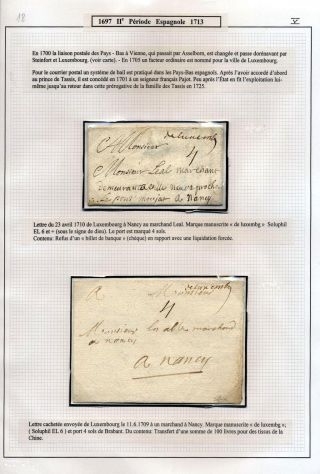 18
1697 IIᵉ Période Espagnole 1713
V
En 1700 la liaison postale des Pays - Bas à Vienne, qui passait par Asselborn, est changée et passe dorénavant par
Steinfort et Luxembourg. (voir carte). - En 1705 un facteur ordinaire est nommé pour la ville de Luxembourg.
Pour le courrier postal un système de bail est pratiqué dans les Pays-Bas espagnols. Après l'avoir accordé d'abord
au prince de Tassis, il est consigné en 1701 au seigneur français Pajot. Puis après l'État en fit l'exploitation lui-
même jusqu'au retour dans cette prérogative de la famille des Tassis en 1725.
de luxemb
A Monsieur
4
Monsieur Leal marchant
demeurant a
a Nancy
Lettre du 23 avril 1710 de Luxembourg à Nancy au marchand Leal. Marque manuscrite « de luxembg » Soluphil
EL 6 et + (sous le signe de dieu). Le port est marqué 4 sols.
Contenu: Refus d'un « billet de banque » (chèque) en rapport avec une liquidation forcée.
de luxemb
A Monsieur
4
Monsieur marchand
a nancy
a nancy
Lettre cachetée envoyée de Luxembourg le 11.6.1709 à un marchand à Nancy. Marque manuscrite « de luxembg »;
( Soluphil EL 6 ) et port 4 sols de Brabant. Du contenu: Transfert d'une somme de 100 livres pour des tissus de la
Chine.